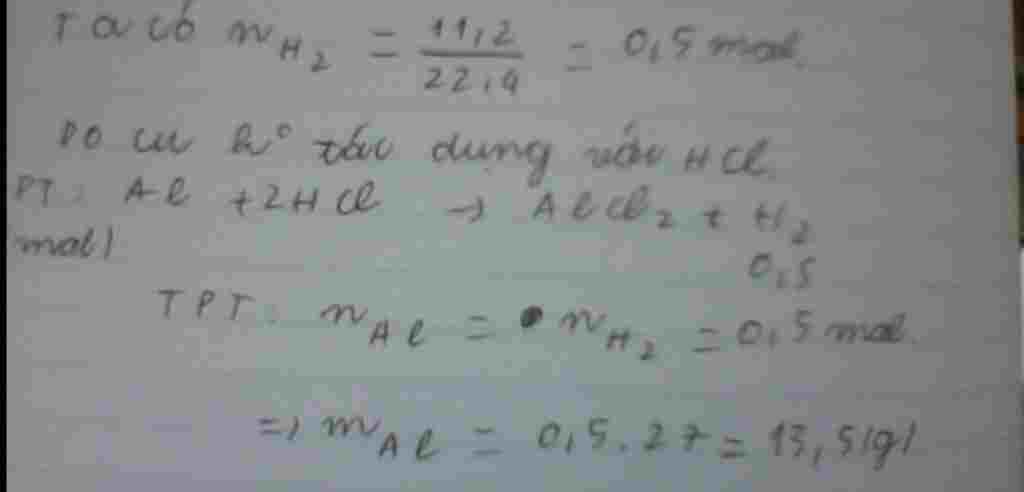 Ta có n H2 = 11,2 / 22,4 = 0,5 mol.
Do Cu k° tác dụng với HCl.
PT: Al + 2HCl → AlCl2 + H2
mol) 0,5
TPT: nAl = nH2 = 0,5 mol.
=> mAl = 0,5.27 = 13,5(g)